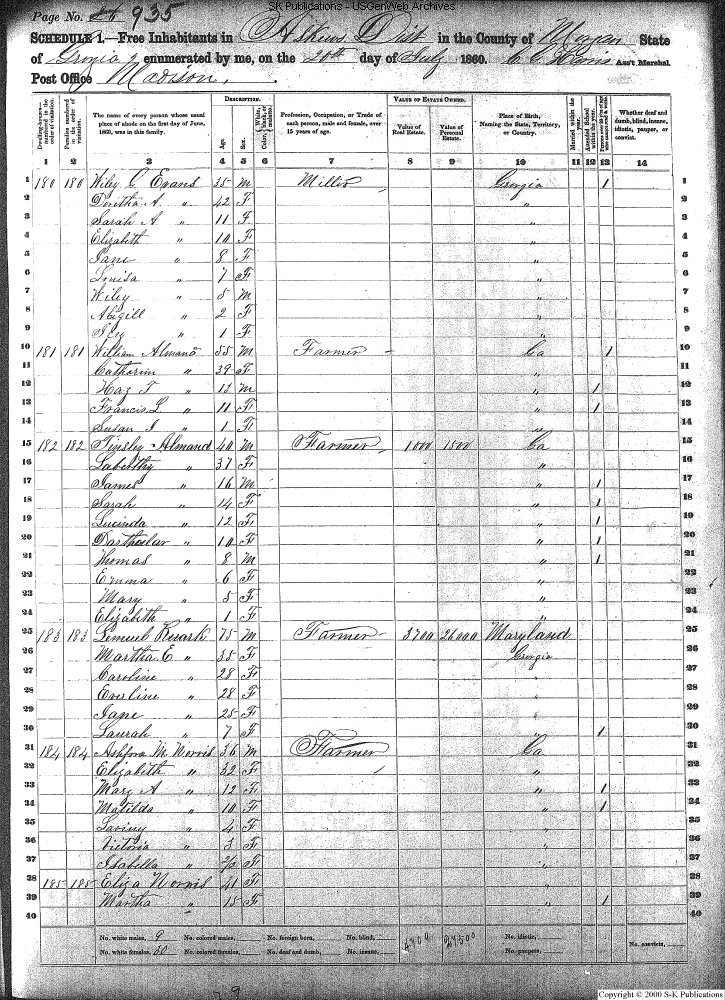 SK Publications - USGenWeb Archives
Page No. 935
SCHEDULE 1.—Free Inhabitants in Askews Dist in the County of Morgan State
of Georgia enumerated by me, on the 20th day of July 1860. Ass't Marshal.
Post Office Madison.
Dwelling-houses—numbered in the order of visitation.
Families numbered in the order of visitation.
The name of every person whose usual place of abode on the first day of June, 1860, was in this family.
DESCRIPTION.
Age.
Sex.
Color, White, black, or mulatto.
Profession, Occupation, or Trade of each person, male and female, over 15 years of age.
VALUE OF ESTATE OWNED.
Value of Real Estate.
Value of Personal Estate.
Place of Birth, Naming the State, Territory, or Country.
Married within the year.
Attended School within the year.
Whether deaf and dumb, blind, insane, idiotic, pauper, or convict.
1 2 3 4 5 6 7 8 9 10 11 12 13 14
1 180 180 Wiley C Evans 35 M Georgia 1 1
2 " 42 F " 2
3 Sarah A " 11 F " 3
4 Elizabeth " 10 F " 4
5 Jane " 8 F " 5
6 Louisa " 7 F " 6
7 Wiley " 5 M " 7
8 Abigill " 2 F " 8
9 " 1 F " 9
10 181 181 William Almand 55 M Farmer Ga 1 10
11 Catharine " 39 F " 11
12 " 13 M " 1 12
13 Francis L " 11 F " 1 13
14 Susan " 1 F " 14
15 182 182 Tinsley Almand 40 M Farmer 1000 1500 Ga 15
16 " 37 F " 16
17 James " 16 M " 1 17
18 Sarah " 14 F " 1 18
19 Lucinda " 12 F " 1 19
20 " 10 F " 1 20
21 Thomas " 8 M " 1 21
22 Emma " 6 F " 22
23 Mary " 5 F " 23
24 Elizabeth " 1 F " 24
25 183 183 Lemuel Ruark 75 M Farmer 3700 26000 Maryland 25
26 Martha E " 35 F Georgia 26
27 Caroline " 28 F " 27
28 Everline " 28 F " 28
29 Jane " 25 F " 29
30 Laurah " 7 F " 1 30
31 184 184 M Norris 36 M Farmer Ga 31
32 Elizabeth " 32 F " 32
33 Mary A " 12 F " 1 33
34 Matilda " 10 F " 1 34
35 Laviny " 4 F " 35
36 Victoria " 3 F " 36
37 Isabella " F " 37
38 185 185 Eliza Norris 41 F " 38
39 Martha " 15 F " 1 39
40 40
No. white males, 9 No. colored males, No. foreign born, No. blind, 27500 No. idiotic, No. convicts,
No. white females, 30 No. colored females, No. deaf and dumb, No. insane, No. paupers,
Copyright © 2000 S-K Publications